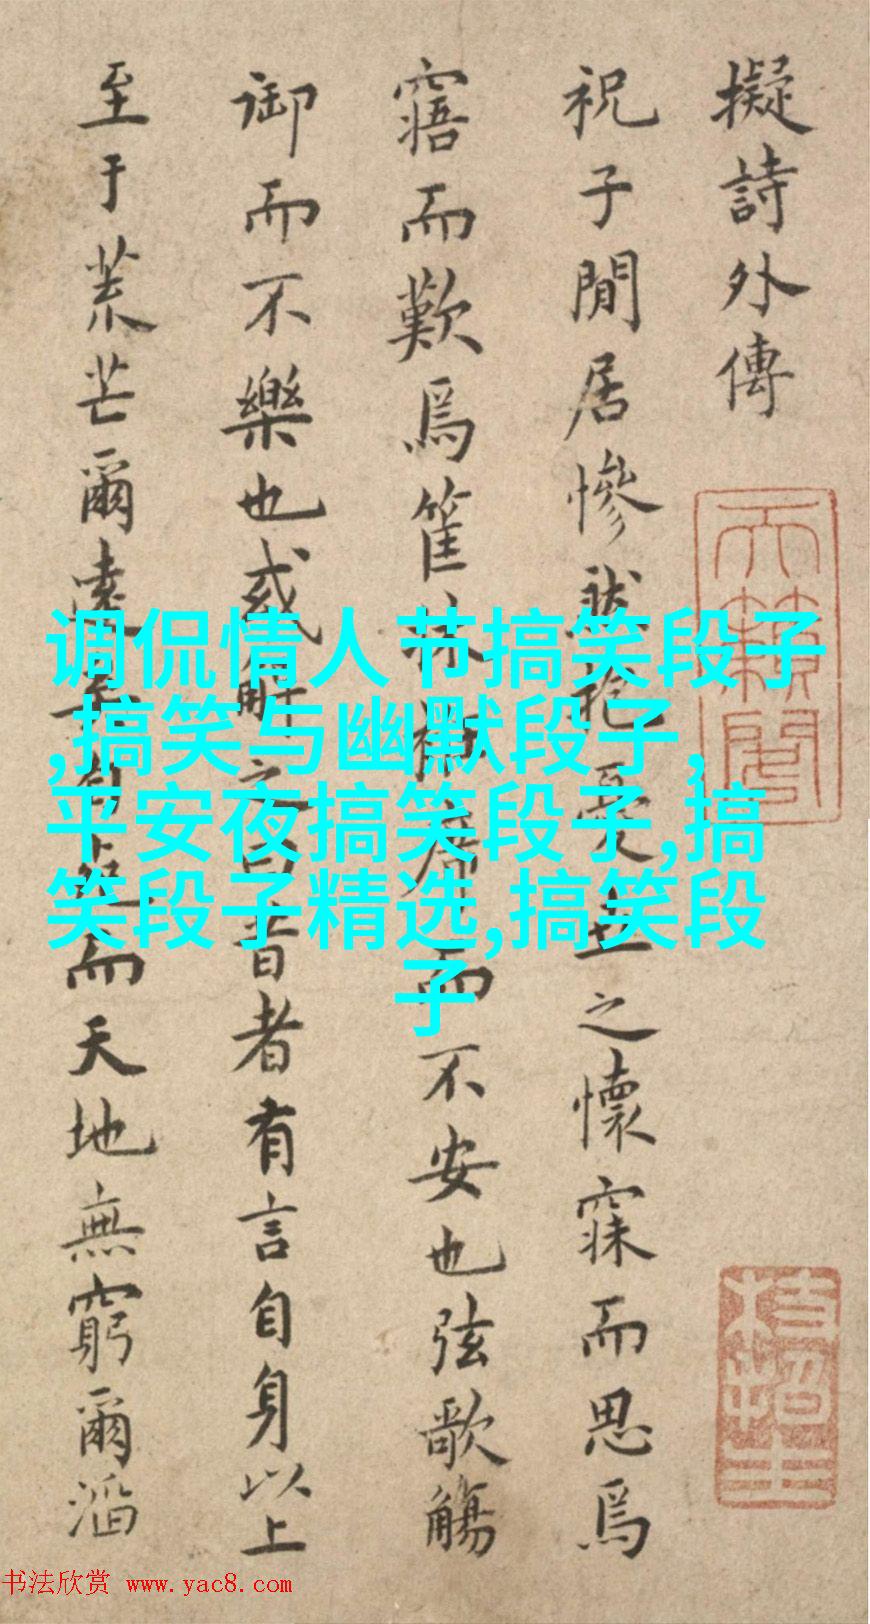 擬詩外傳
祝子閒居慘然抱憂世之懷寐而思焉
寤而歎焉筐牀袵席而不安也弦歌觴
御而不樂也或解之曰昔者有言自身以上
至于荒芒爾遠矣自此而天地無窮爾滔
调侃情人节搞笑段子
,搞笑与幽默段子,
平安夜搞笑段子,搞
笑段子精选,搞笑段
子
书法欣赏 www.yac8.com